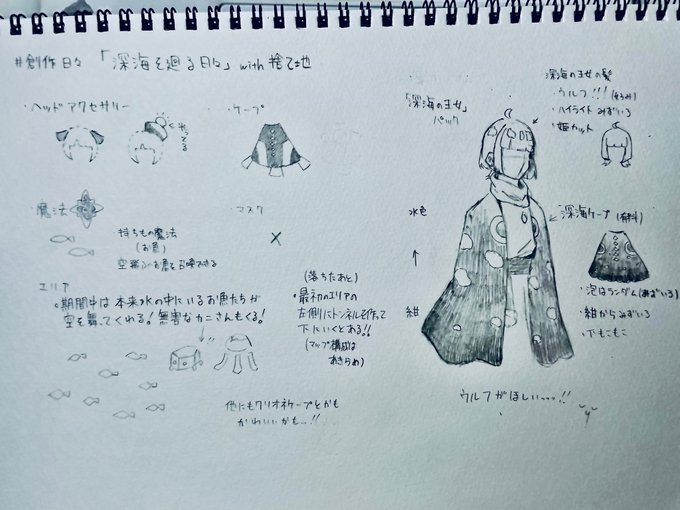 #創作日々 「深海を廻る日々」 with 捨て地
・ヘッドアクセサリー
光ってる
・ケープ
・魔法
持ちもの魔法
(お魚)
空舞うお魚を召喚できる
・マスク
×
・エリア
。期間中は本来水の中にいるお魚たちが
空を舞ってくれる!無害なカニさんもくる!
(落ちたあと)
・最初のエリアの
左側にトンネルを作って
下にいくとある!!
(マップ構成は
あきらめ)
他にもクリオネケープとかも
かわいいかも…!!
「深海の王女」
パック
深海の王女の髪
・ウルフ!!!
・ハイライト みずいろ
・姫カット
水色
↑
紺
深海ケープ (有料)
・泡はランダム(みずいろ)
・紺からみずいろ
・下もこもこ
ウルフがほしいっっっ!!